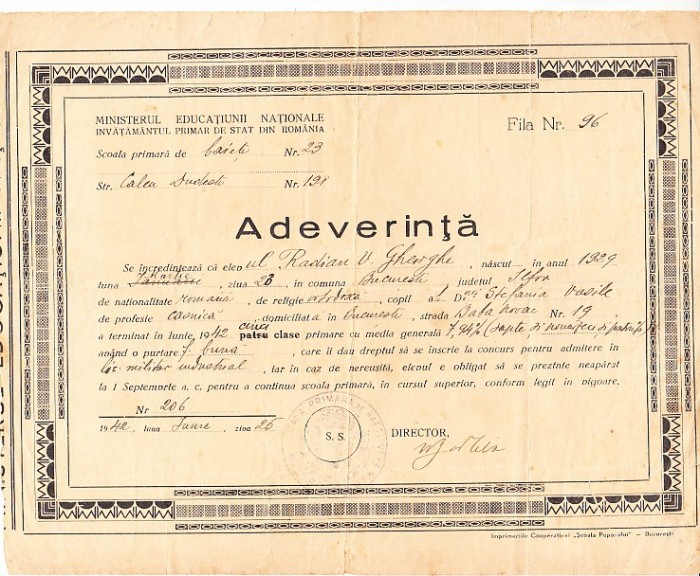 MINISTERUL EDUCAȚIUNII NAȚIONALE
INVĂȚĂMÂNTUL PRIMAR DE STAT DIN ROMÂNIA
Fila Nr. 96
Școala primară de baieți Nr. 23
Str. Calea Dudești Nr. 131
Adeverință
Se încredințează că elevul Radian V. Gheorghe, născut în anul 1929
luna Martie, ziua 23 în comuna București județul Ilfov
de naționalitate română, de religie ortodoxă, copil al D Stefania Vasile
de profesie casnică, domiciliată în București, strada Baba Novac Nr. 19,
a terminat în Iunie 1942 cinci patru clase primare cu media generală 7,94% (șapte și nouăzeci și patru %)
având o purtare f. bună, care îi dau dreptul să se înscrie la concurs pentru admitere în
lic. militar industrial, iar în caz de nereușită, elevul e obligat să se prezinte neapărat
la 1 Septemvrie a. c. pentru a continua școala primară, în cursul superior, conform legii în vigoare.
Nr 206
1942, luna Iunie, ziua 25
S. S.
DIRECTOR,
Imprimeriile Cooperativei „Școala Poporului” – București